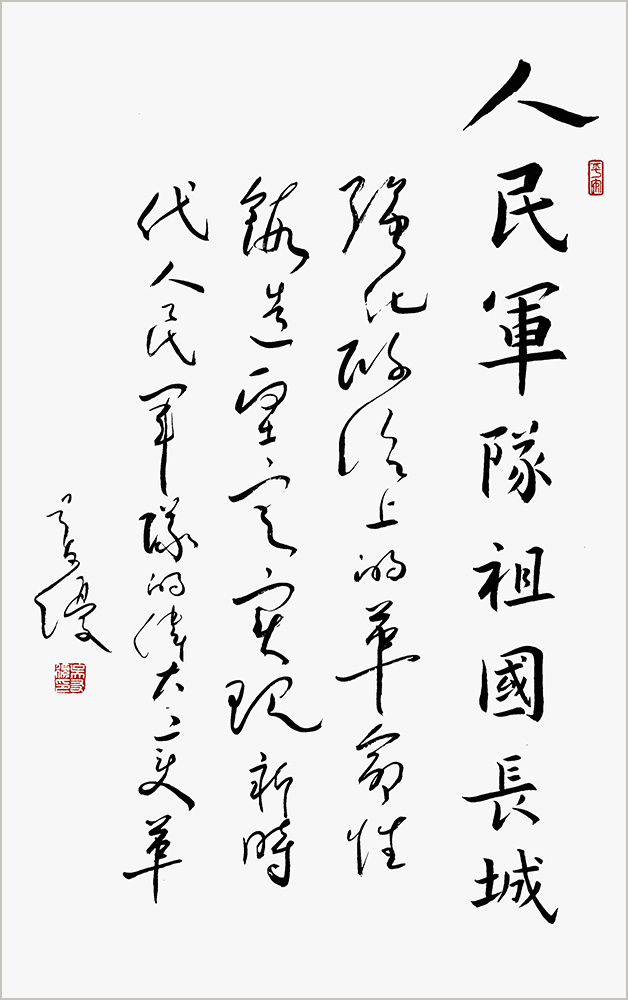 人民軍隊祖國長城
強化政治上的革命性
鍛造堅定实现新時
代人民军隊的偉大变革